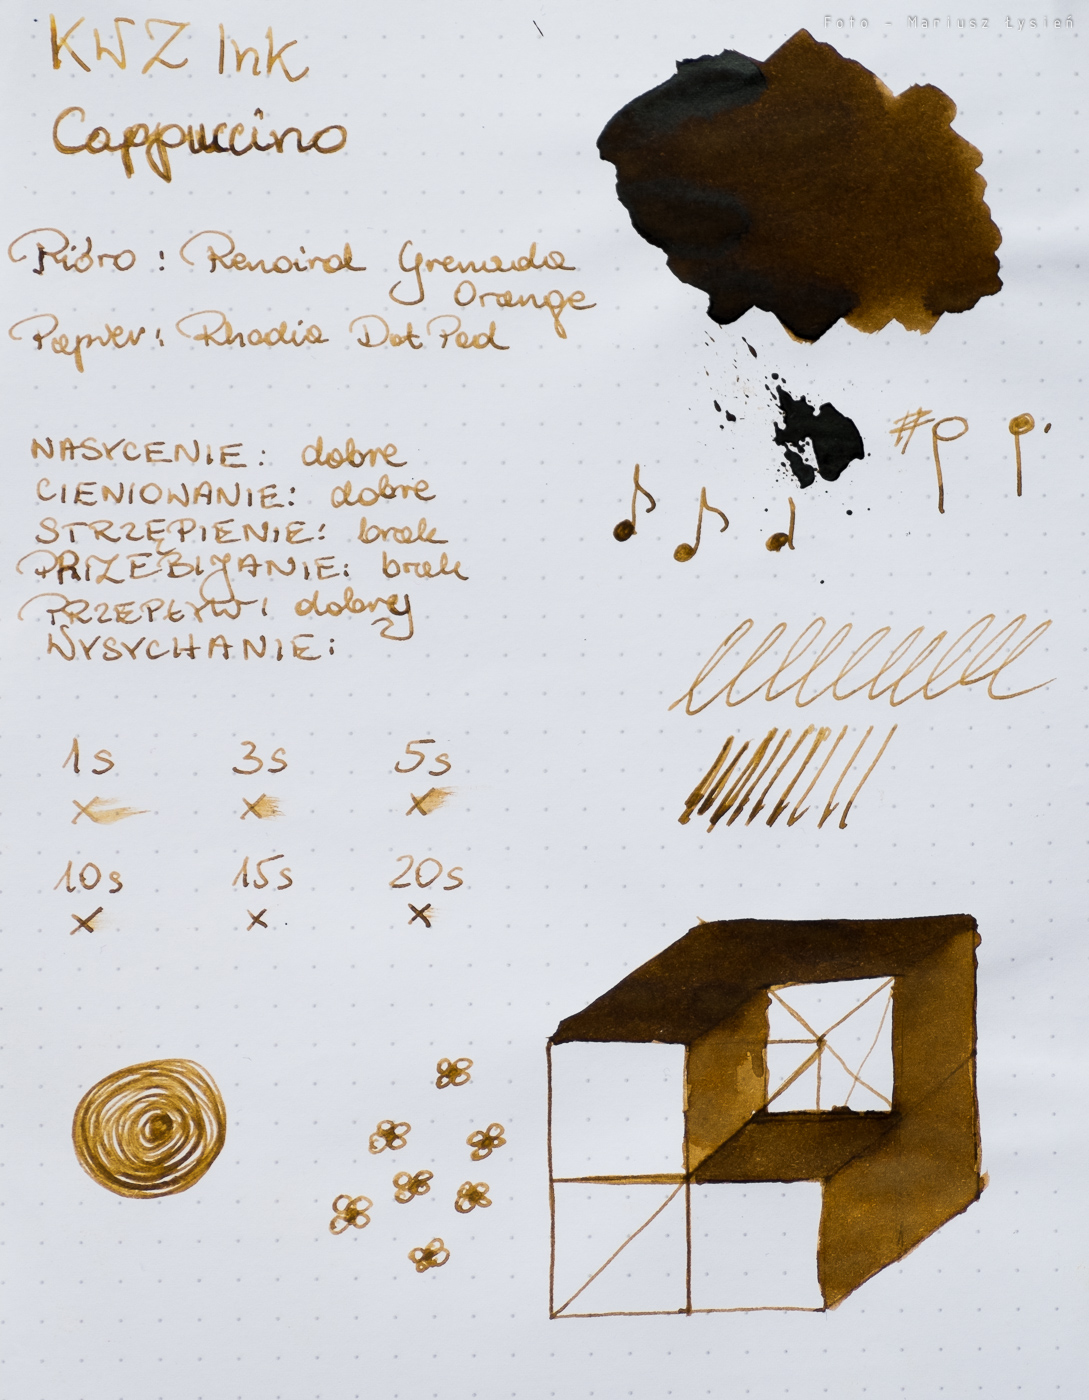 Foto - Mariusz Łysień
KWZ Ink
Cappuccino
Pióro : Renaird Grenada
Orange
Papier: Rhodia Dot Pad
NASYCENIE: dobre
CIENIOWANIE: dobre
STRZĘPIENIE: brak
PRZEBIJANIE: brak
PRZEPŁYW: dobry
WYSYCHANIE:
1s 3s 5s
x x x
10s 15s 20s
x x x